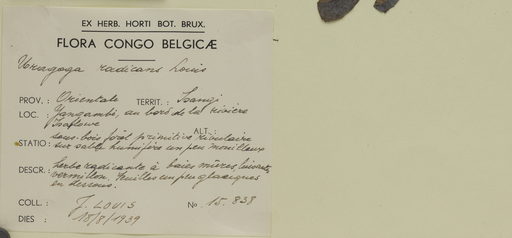 EX HERB. HORTI BOT. BRUX.
FLORA CONGO BELGICÆ
Uragoga radicans Louis
PROV. : Orientale TERRIT. : Isangi
LOC. : Yangambi, au bord de la rivière
Isalowe ALT. :
sous-bois forêt primitive rivulaire
STATIO : sur sable humifère un peu marécageux
DESCR. : herbe radicante à baies mûres luisantes
vermillon. Feuilles un peu glauques
en dessous.
COLL. : J. LOUIS No 15.838
DIES : 18/8/1939